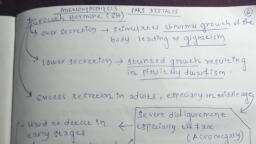 ADENOHYPOPHYSIS (PARS DISTALIS)
Growth Hormone (GH)
Over Secretion → stimulates abnormal growth of the
body leading to gigantism
Lower Secretion → stunted growth resulting
in pituitary dwarfism.
Excess secretion in adults, especially in middle age
Severe disfigurement
especially of face
(Acromegaly)
- Hard to detect in
early stages